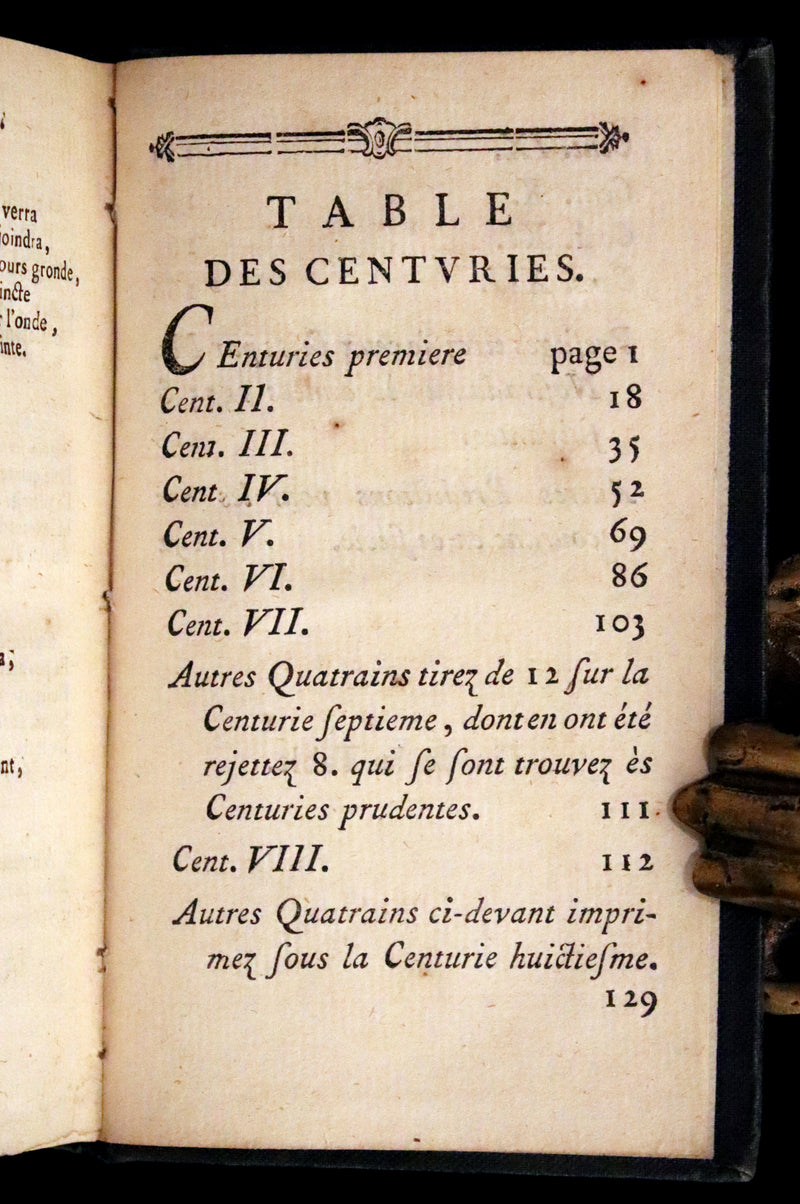 verra
oindra,
ours gronde,
incte
l'onde,
inte.
a;
nt,
TABLE
DES CENTVRIES.
CEnturies premiere page 1
Cent. II. 18
Cent. III. 35
Cent. IV. 52
Cent. V. 69
Cent. VI. 86
Cent. VII. 103
Autres Quatrains tirez de 12 ſur la
Centurie ſeptieme, dont en ont été
rejettez 8. qui ſe ſont trouvez ès
Centuries prudentes. 111
Cent. VIII. 112
Autres Quatrains ci-devant impri-
mez ſous la Centurie huictieſme.
129